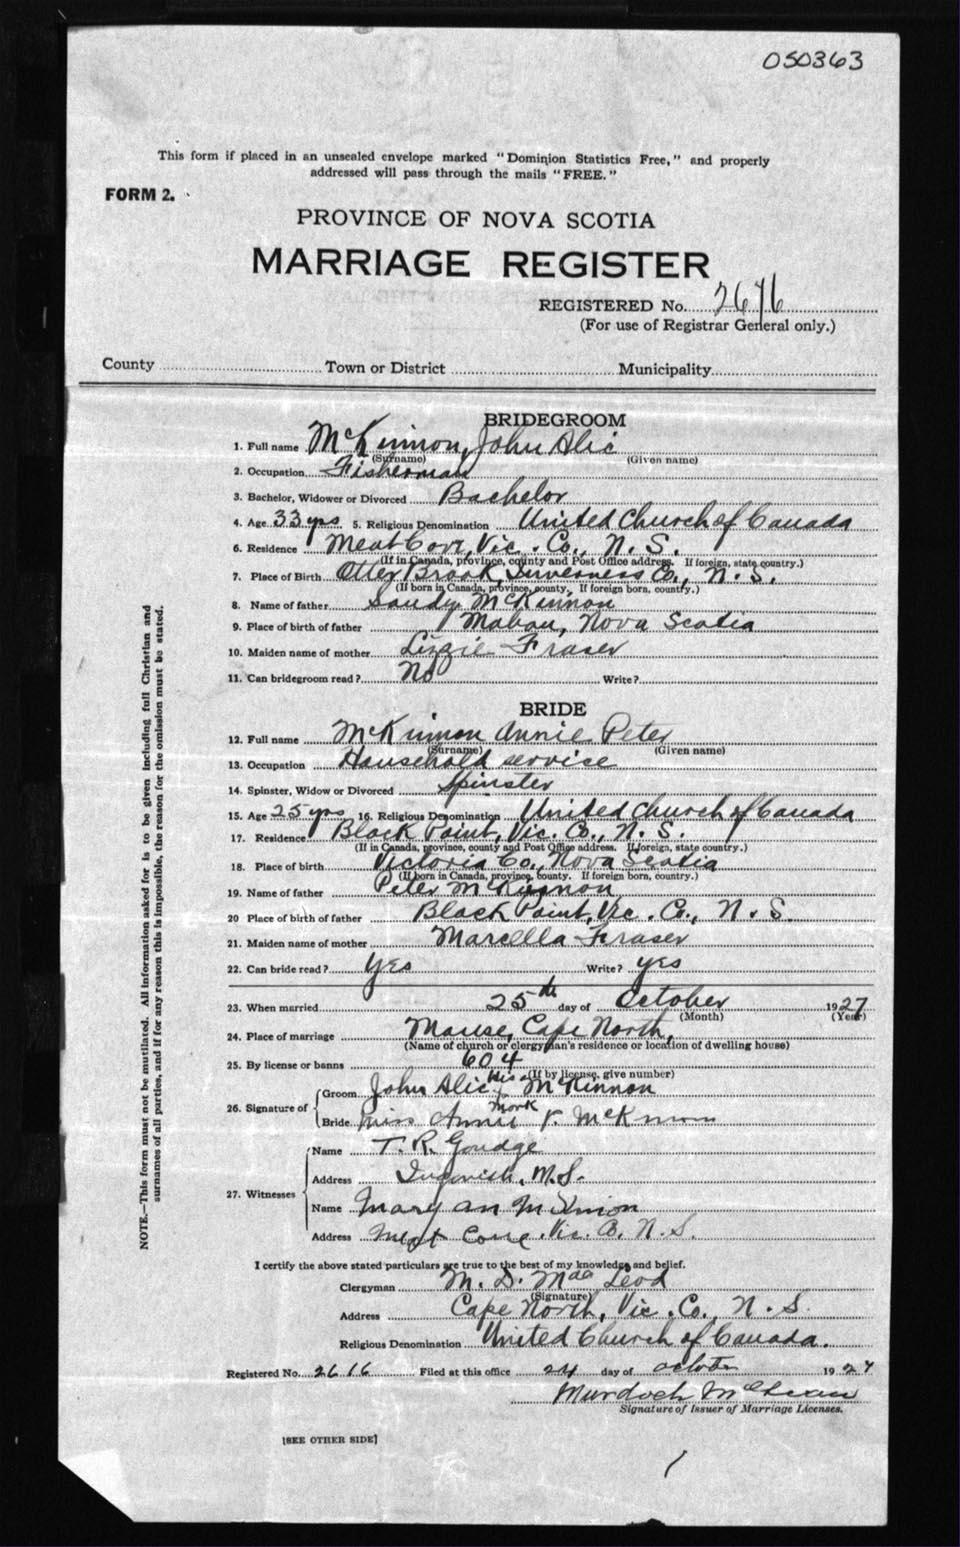 050363
This form if placed in an unsealed envelope marked "Dominion Statistics Free," and properly
addressed will pass through the mails "FREE."
FORM 2.
PROVINCE OF NOVA SCOTIA
MARRIAGE REGISTER
REGISTERED No. 2676
(For use of Registrar General only.)
County Town or District Municipality
BRIDEGROOM
1. Full name McKinnon, John Alic
(Surname) (Given name)
2. Occupation Fisherman
3. Bachelor, Widower or Divorced Bachelor
4. Age 33 yrs. 5. Religious Denomination United Church of Canada
6. Residence Meat Cove, Vic. Co., N. S.
(If in Canada, province, county and Post Office address. If foreign, state country.)
7. Place of Birth Otter Brook, Inverness Co., N. S.
(If born in Canada, province, county. If foreign born, country.)
8. Name of father Sandy McKinnon
9. Place of birth of father Mabou, Nova Scotia
10. Maiden name of mother Lizzie Fraser
11. Can bridegroom read? No Write?
BRIDE
12. Full name McKinnon Annie Peter
(Surname) (Given name)
13. Occupation Household service
14. Spinster, Widow or Divorced Spinster
15. Age 25 yrs 16. Religious Denomination United Church of Canada
17. Residence Black Point, Vic. Co., N. S.
(If in Canada, province, county and Post Office address. If foreign, state country.)
18. Place of birth Victoria Co., Nova Scotia
(If born in Canada, province, county. If foreign born, country.)
19. Name of father Peter McKinnon
20 Place of birth of father Black Point, Vic. Co., N. S.
21. Maiden name of mother Marcella Fraser
22. Can bride read? Yes Write? yes
23. When married 25th day of October 1927
(Month) (Year)
24. Place of marriage Manse, Cape North,
(Name of church or clergyman's residence or location of dwelling house)
25. By license or banns 604
(If by license, give number)
26. Signature of Groom John Alic his x McKinnon
mark
Bride Miss Annie P. McKinnon
27. Witnesses
Name T. R. Goudge
Address Ingonish, N.S.
Name Mary an McKinnon
Address Meat Cove, Vic. Co. N. S.
I certify the above stated particulars are true to the best of my knowledge and belief.
Clergyman M. D. MacLeod
(Signature)
Address Cape North, Vic. Co., N. S.
Religious Denomination United Church of Canada.
Registered No. 2616 Filed at this office 24 day of October 1927
Murdoch McLean
Signature of Issuer of Marriage Licenses.
[SEE OTHER SIDE]
NOTE.—This form must not be mutilated. All information asked for is to be given including full Christian and
surnames of all parties, and if for any reason this is impossible, the reason for the omission must be stated.